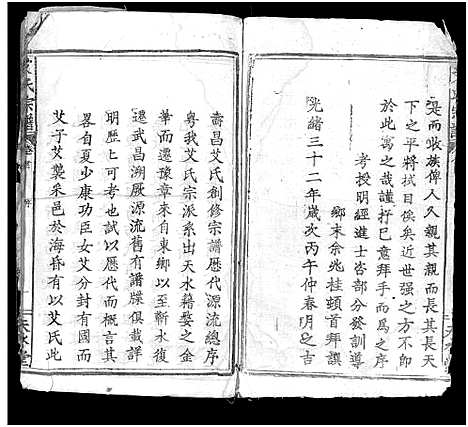 是而收族俾人久親其親而長其長天
下之平將拭目俟矣近世强之方不卽
於此寓之哉謹抒巳意拜手而爲之序
考授明經進士吿部分發訓導
鄉末佘兆桂頓首拜譔
光緒三十二年歲次丙午仲春月之吉
艾氏宗譜
壽昌艾氏創修宗譜歷代源流總序
粤我艾氏宗派系出天水藉婺之金
華而遷豫章來自東鄉以至蘄水復
遷武昌溯厥源流舊有譜牒俱載詳
明歷歷可考試以歷代而概言其
畧自夏少康功臣女艾分封有國
艾子艾爽采邑於海昏有以艾氏此
天水堂